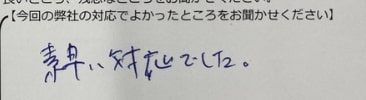 【今回の弊社の対応でよかったところをお聞かせください】
素早い対応でした。